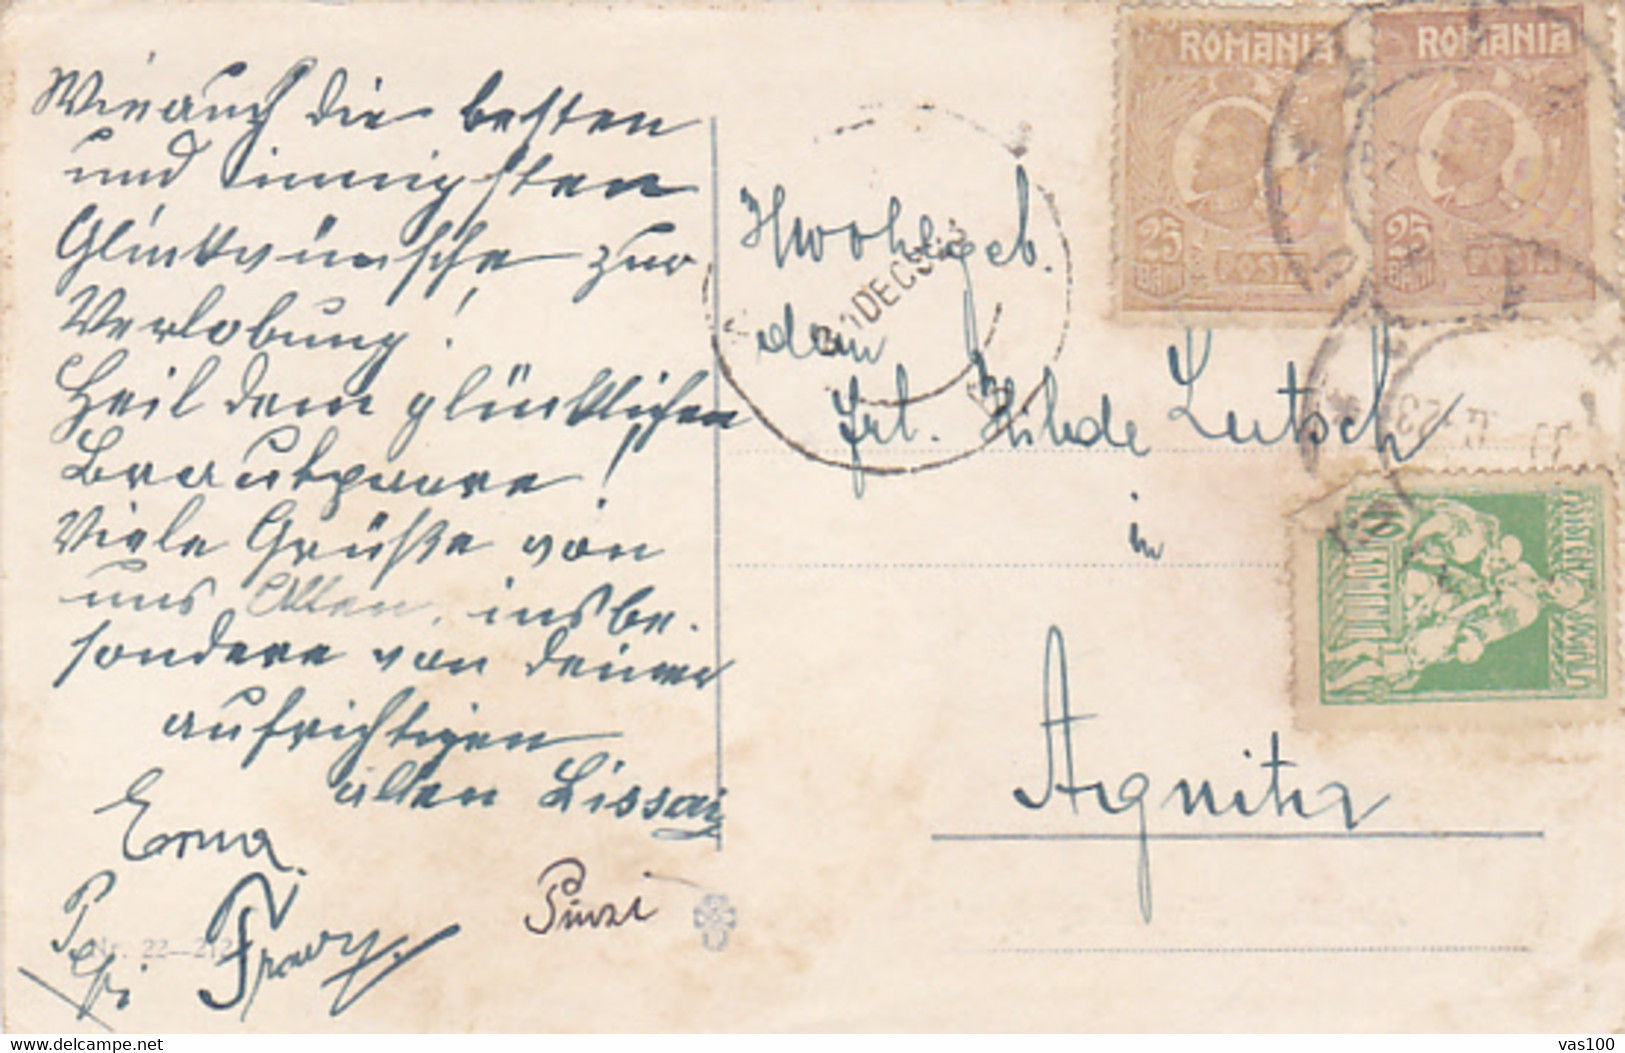 Wie auch die besten
und innigsten
Glückwünsche zur
Verlobung!
Heil dem glücklichen
Brautpaare!
Viele Grüße von
uns Allen, insbe-
sondere von deiner
aufrichtigen
alten Lissai
Erna.
Pepi
Nr. 22-212
ROMANIA
25
BANI
POSTA
ROMANIA
25
BANI
POSTA
DEC
Hwohlgeb.
dem
Frl. Hilde Lutsch
in
Agnita
vas100